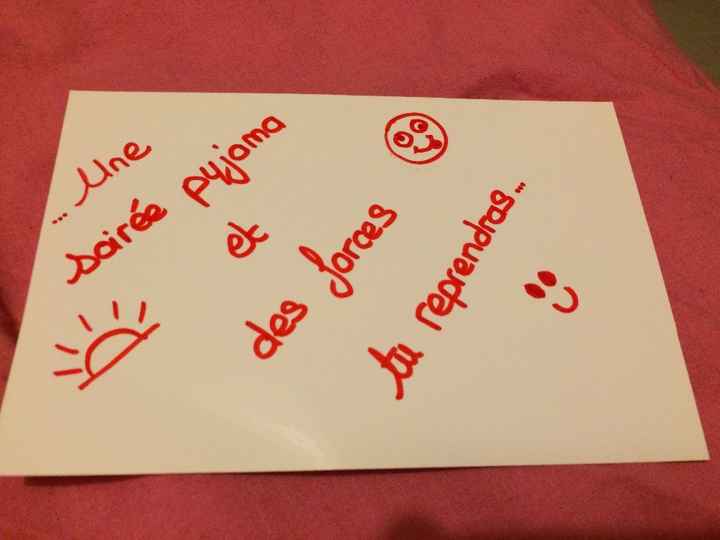 ... Une
soirée pyjama
et
des forces
tu reprendras...